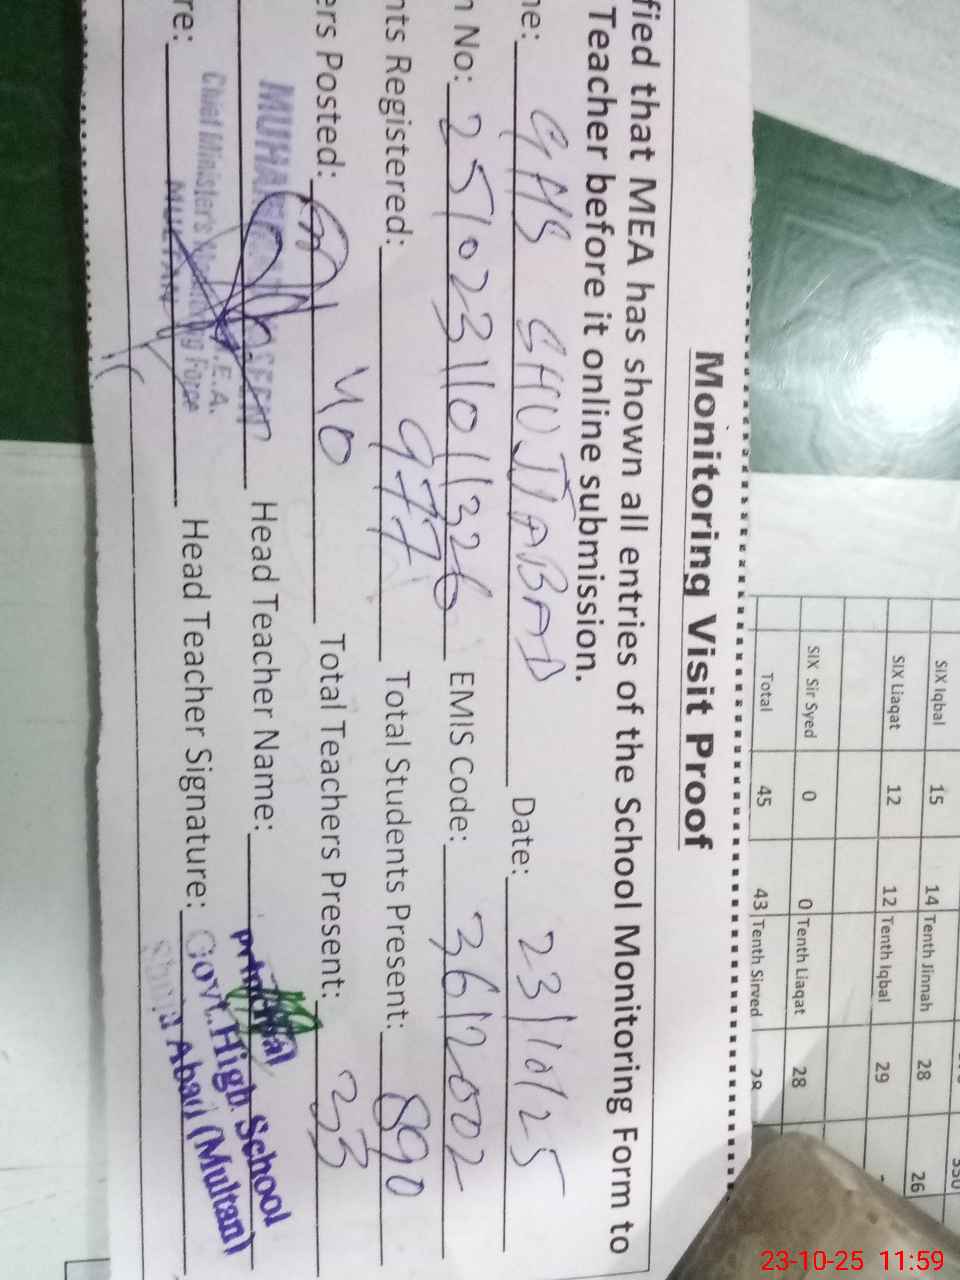 SIX Iqbal 15 14 Tenth Jinnah 28 26
SIX Liaqat 12 12 Tenth Iqbal 29
SIX Sir Syed 0 0 Tenth Liaqat 28
Total 45 43 Tenth Sirved 28
Monitoring Visit Proof
fied that MEA has shown all entries of the School Monitoring Form to
Teacher before it online submission.
ne: GHS SHUJABAD Date: 23/10/25
n No: 25102311011326 EMIS Code: 3612002
nts Registered: 977 Total Students Present: 890
ers Posted: 40 Total Teachers Present: 33
Head Teacher Name: Principal
re: Head Teacher Signature: Govt. High School
Abad (Multan)
Chief Minister's Monitoring Force
M.E.A.
MULTAN
23-10-25 11:59